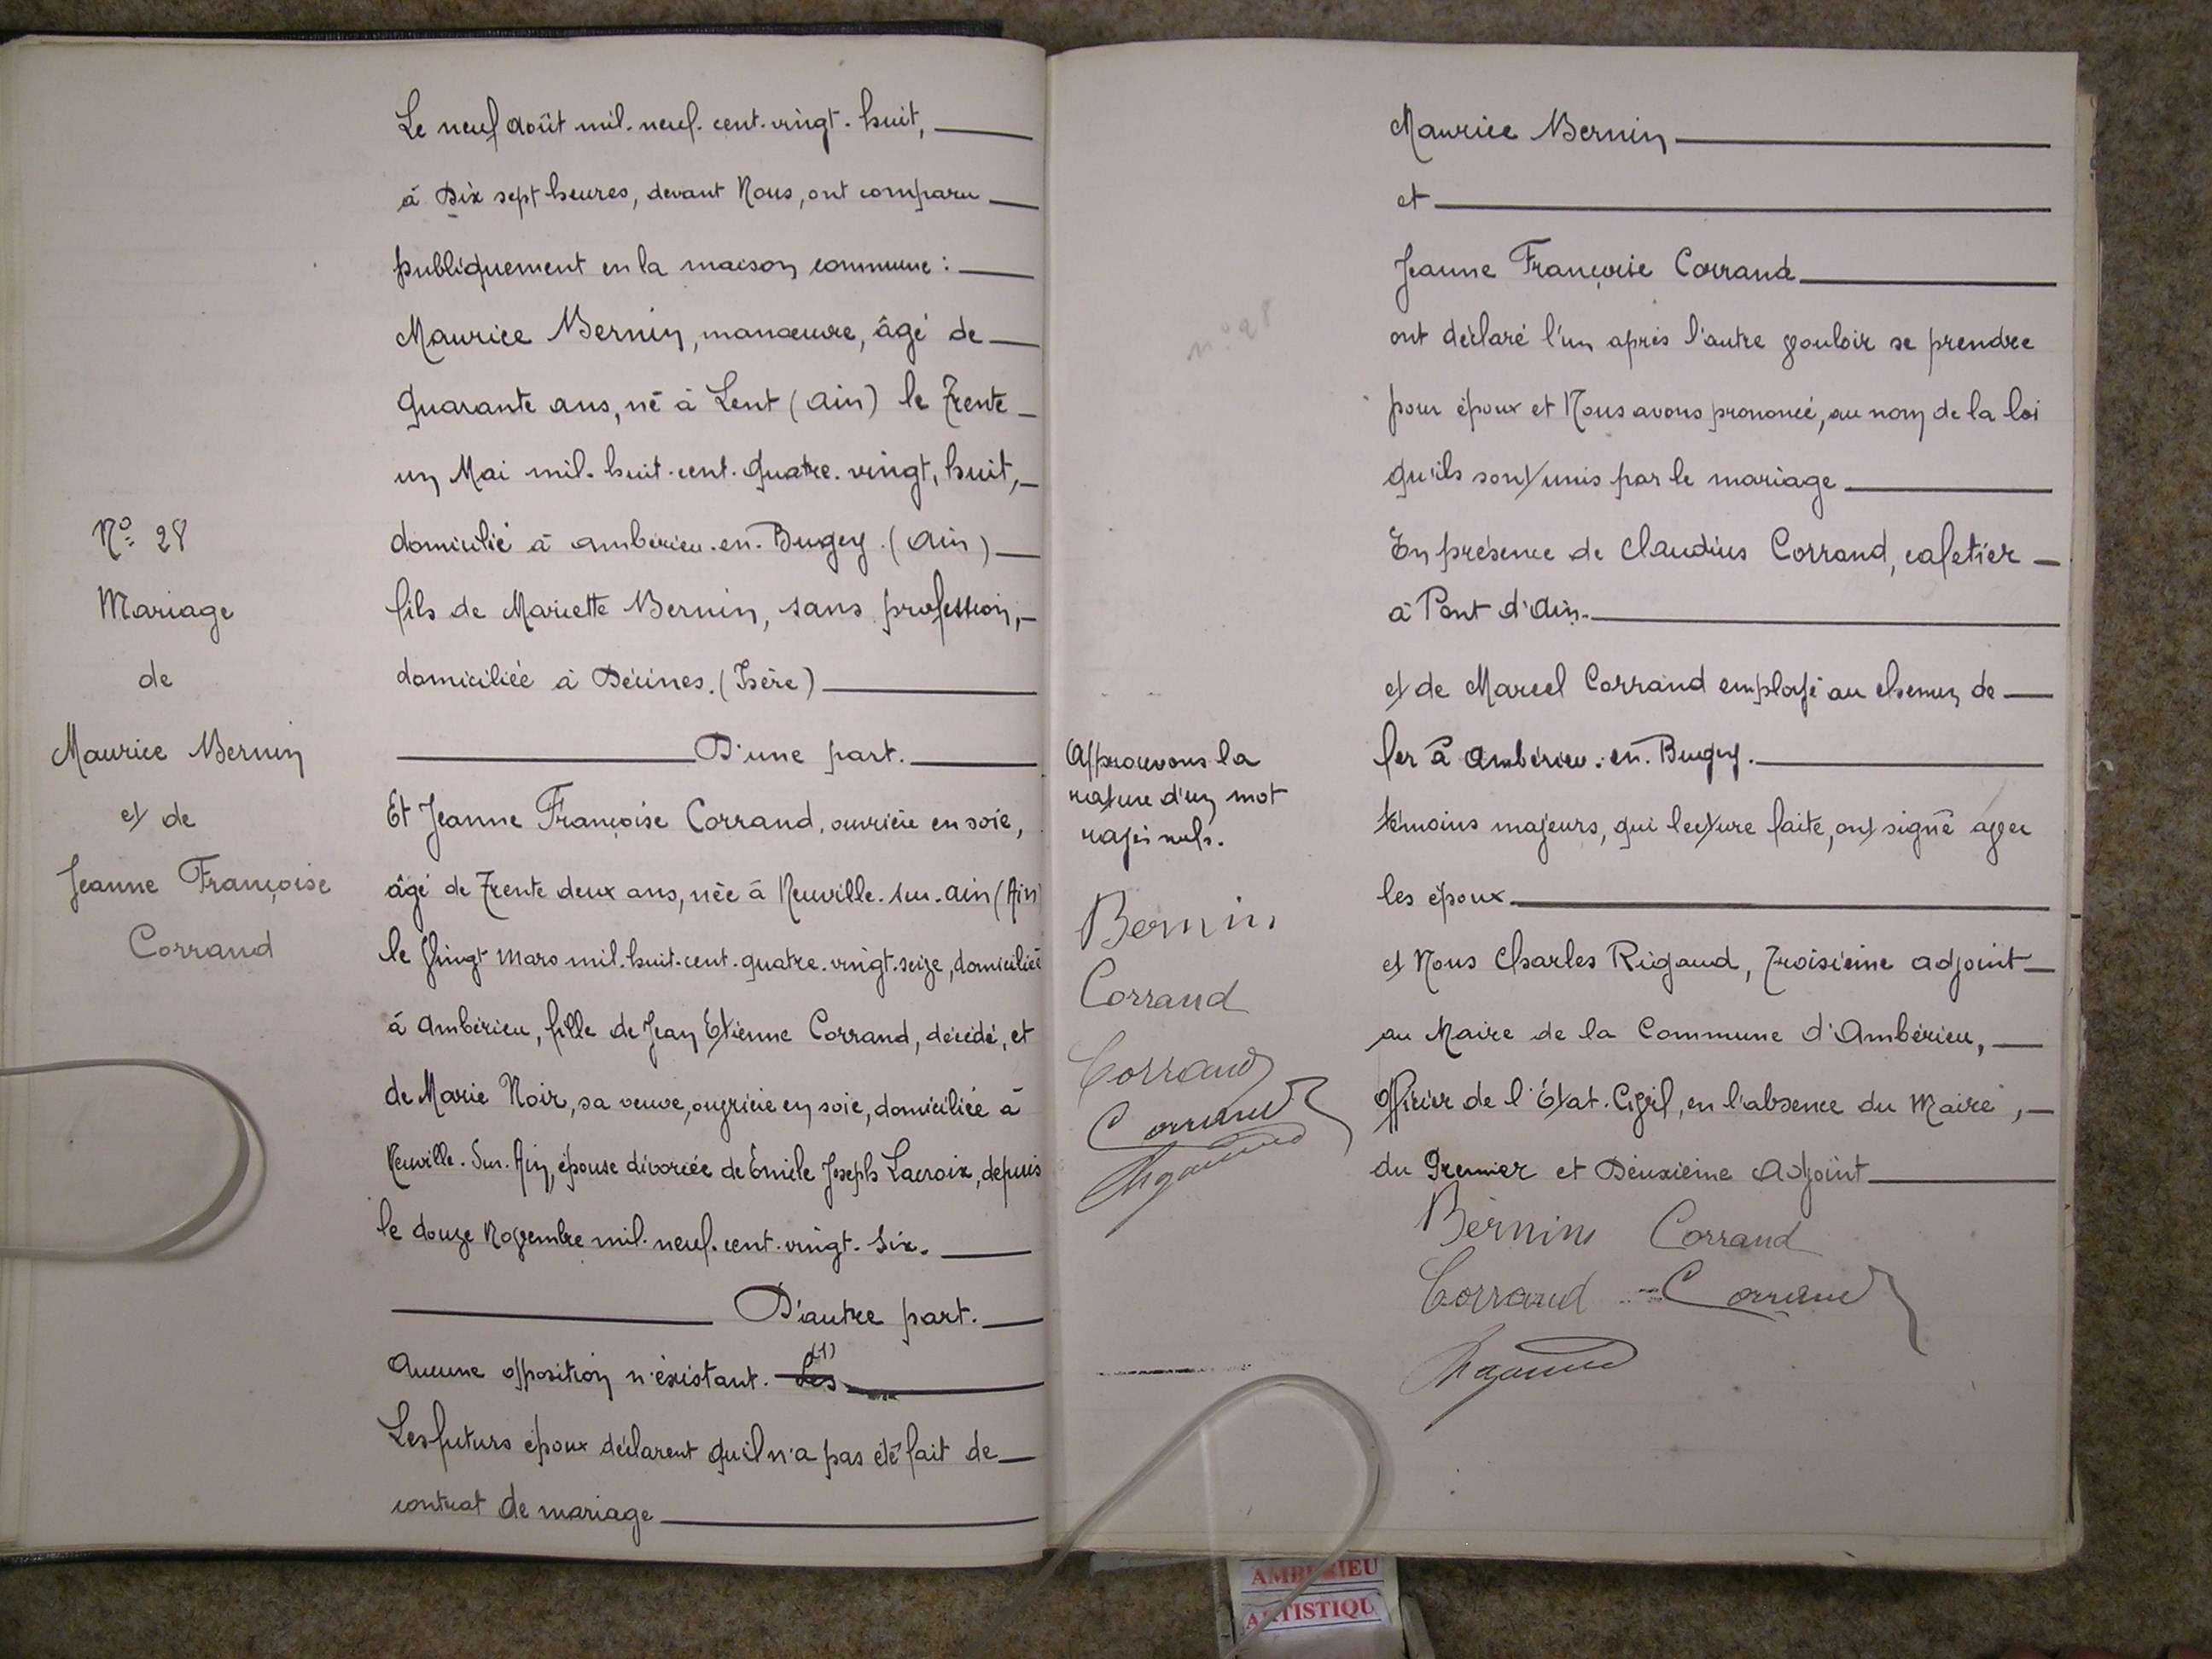 Le neuf août mil. neuf. cent. vingt. huit,
à Dix sept heures, devant Nous, ont comparu
publiquement en la maison commune :
Maurice Bernin, manœuvre, âgé de
Quarante ans, né à Lent (Ain) le Trente
un Mai mil. huit. cent. Quatre. vingt. huit,
N° 28
domicilié à Ambérieu. en. Bugey. (Ain)
Mariage
fils de Mariette Bernin, sans profession,
de
domiciliée à Décines. (Isère)
Maurice Bernin
D'une part.
et de
Et Jeanne Françoise Corrand, ouvrière en soie,
Jeanne Françoise
âgé de Trente deux ans, née à Neuville. sur. Ain (Ain)
Corrand
le Vingt Mars mil. huit. cent. quatre. vingt. seize, domiciliée
à Ambérieu, fille de Jean Etienne Corrand, décédé, et
de Marie Noir, sa veuve, ouvrière en soie, domiciliée à
Neuville. Sur. Ain, épouse divorcée de Emile Joseph Lacroix, depuis
le douze Novembre mil. neuf. cent. vingt. Six.
D'autre part.
Aucune opposition n'éxistant. Les (1)
Les futurs époux déclarent qu'il n'a pas été fait de
contrat de mariage
Maurice Bernin
et
Jeanne Françoise Corrand
n° 28
ont déclaré l'un après l'autre vouloir se prendre
pour époux et Nous avons prononcé, au nom de la loi
qu'ils sont unis par le mariage
En présence de Claudius Corrand, cafetier
à Pont d'Ain.
et de Marcel Corrand employé au chemin de
fer à Ambérieu. en. Bugey.
témoins majeurs, qui lecture faite, ont signé avec
les époux
et Nous Charles Rigaud, Troisième adjoint
au Maire de la Commune d'Ambérieu,
Officier de l'État. Civil, en l'absence du Maire,
du Premier et Deuxième Adjoint
Approuvons la
rature d'un mot
rayés nuls.
Bernin
Corrand
Corrand
Corrand
Bernin Corrand
Corrand Corrand
AMBERIEU
ARTISTIQU